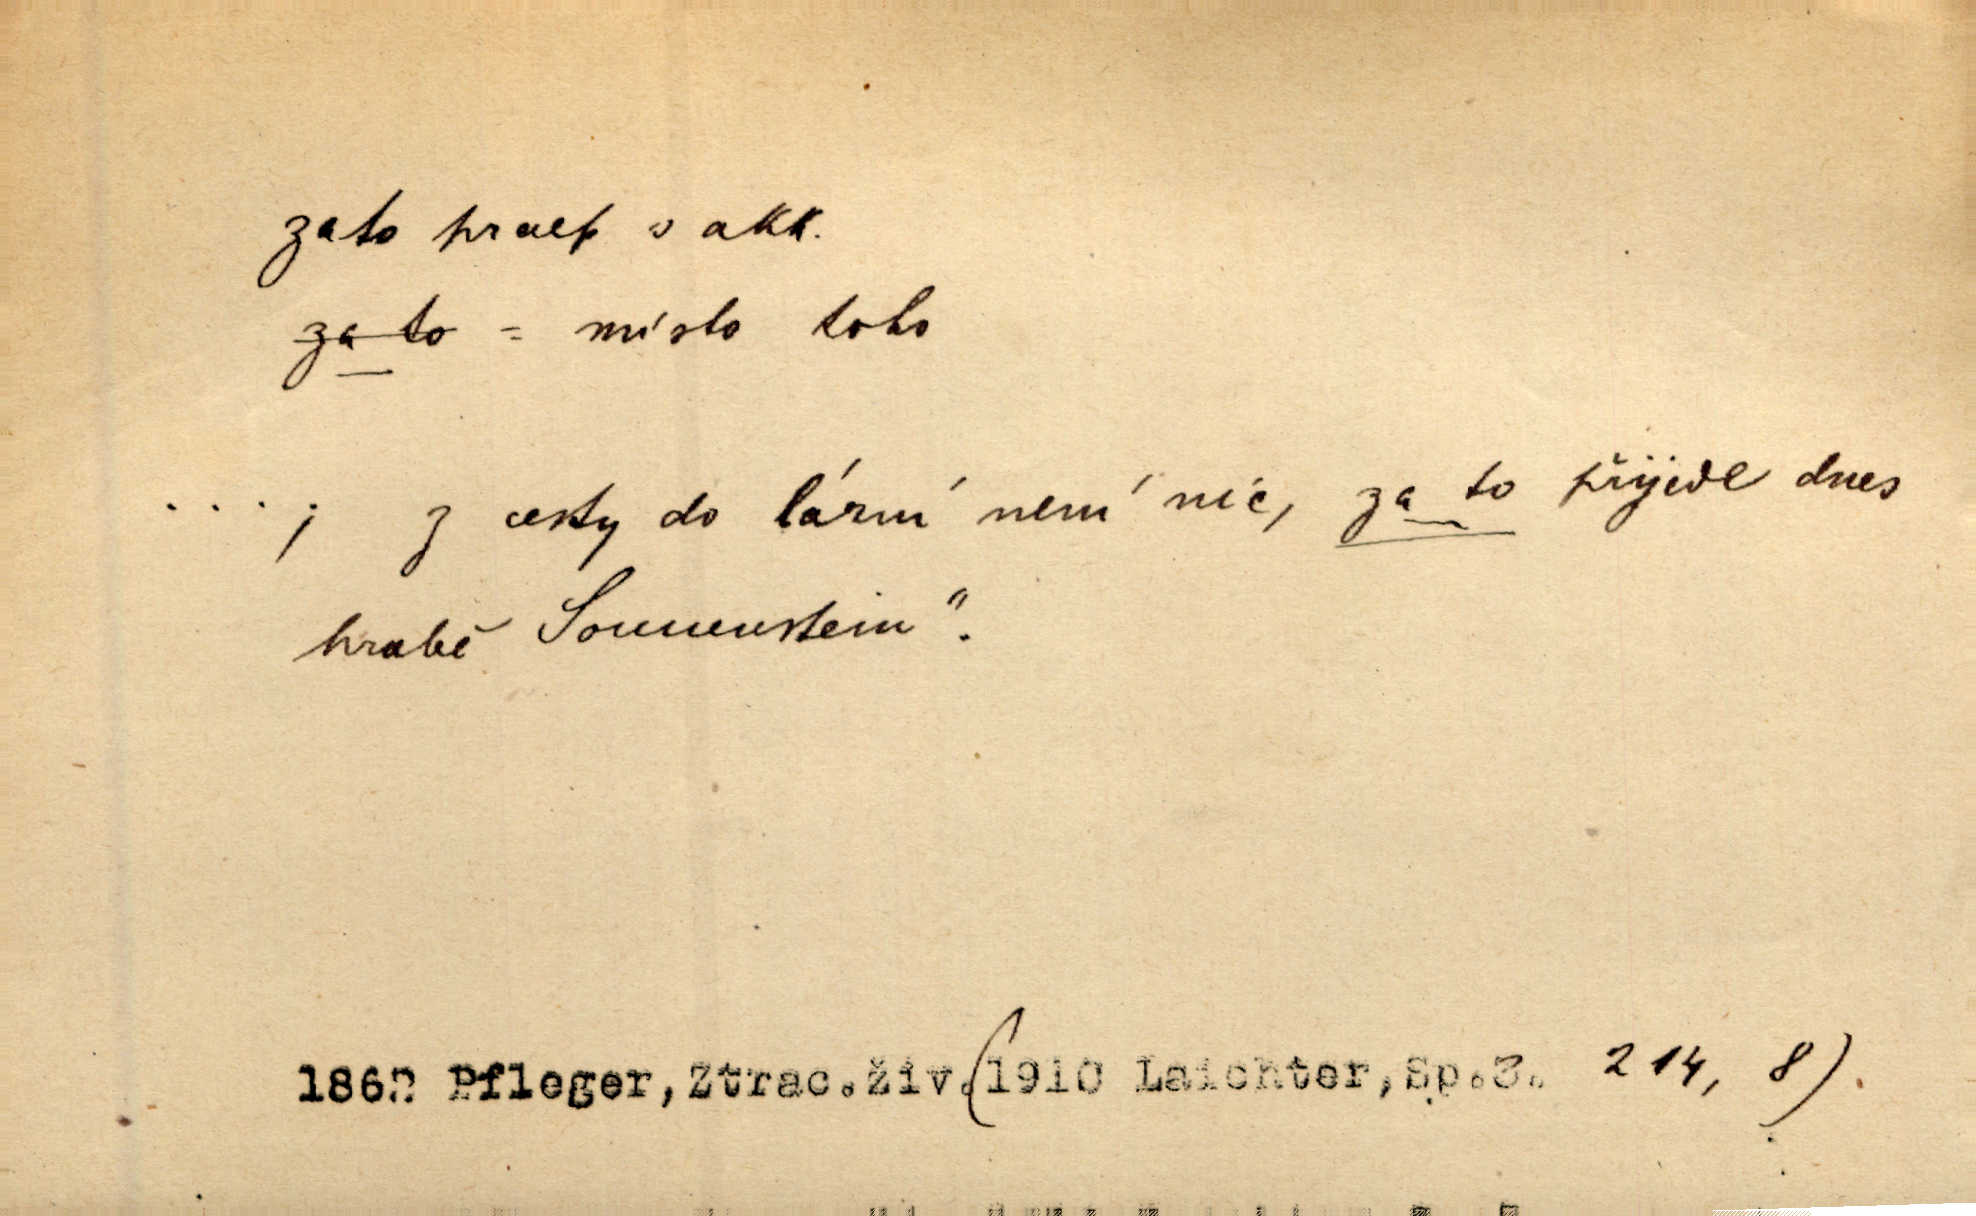 zato praep s akk.
za to = místo toho
....; z cesty do lázní není nic, za to přijede dnes
hrabě Sonnenstein".
1862 Pfleger, Ztrac.živ.(1910 Laichter, Sp.3. 214, 8).